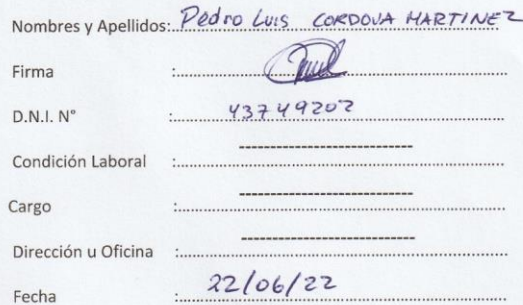 Nombres y Apellidos: Pedro Luis CORDOVA MARTINEZ
Firma :
D.N.I. N° : 43749202
Condición Laboral : --------------------------
Cargo : --------------------------
Dirección u Oficina : --------------------------
Fecha : 22/06/22